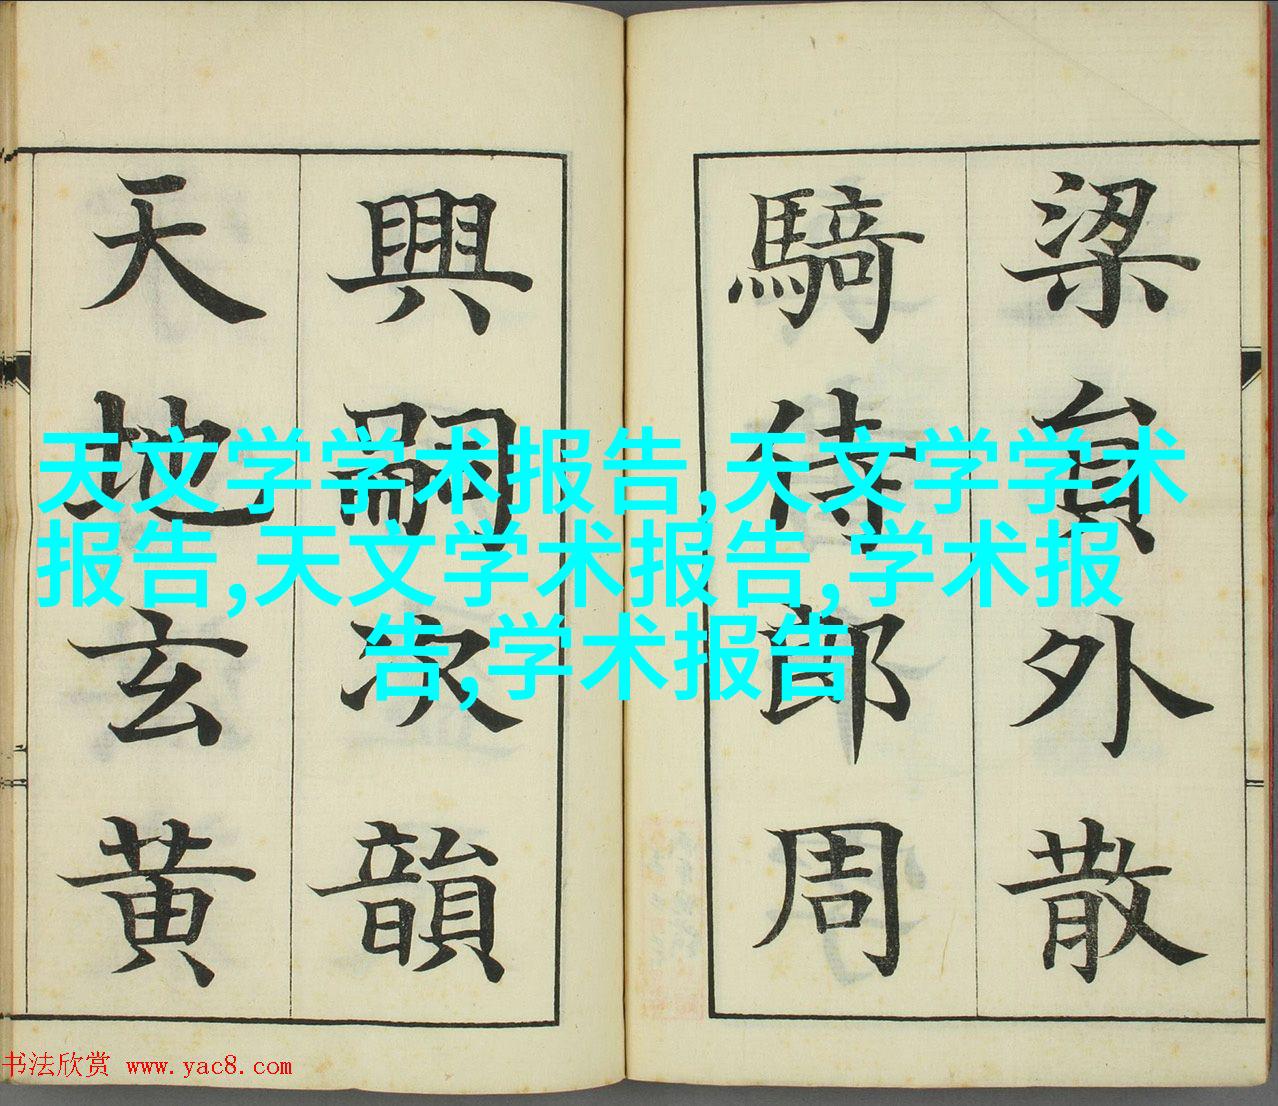 梁貟外散
騎侍郎周
興嗣次韻
天地玄黄
天文学学术报告,天文学学术
报告,天文学术报告,学术报
告,学术报告
书法欣赏 www.yac8.com